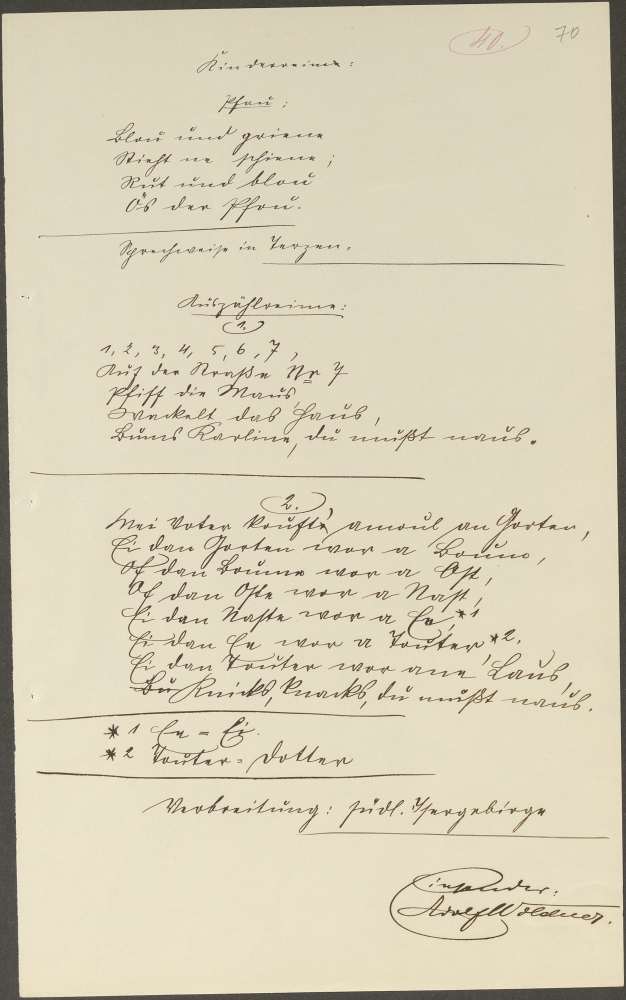 40. 70
Kinderreime:
Pfau:
Blou und griene
Stieht ne schiene;
Rut und blou
Ös der Pfou.
Sprechweise in Terzen.
Auszählreime:
1.
1, 2, 3, 4, 5, 6, 7,
Auf der Straße Nr 7
Pfiff die Maus,
Wackelt das Haus,
Bums Karline, du mußt naus.
2.
Mei Voter koufte amoul an Gorten,
Ei dan Gorten wor a Boum,
Of dan Boume wor a Ost,
Of dan Oste wor a Nast,
Ei dan Naste wor a Ee, *1
Ei dan Ee wor a Touter *2.
Ei dan Touter wor ane Laus,
Knicks, knacks, du mußt naus.
*1 Ee = Ei.
*2 Touter = Dotter
Verbreitung: südl. Isergebirge
Einsender:
Adolf Wildner.